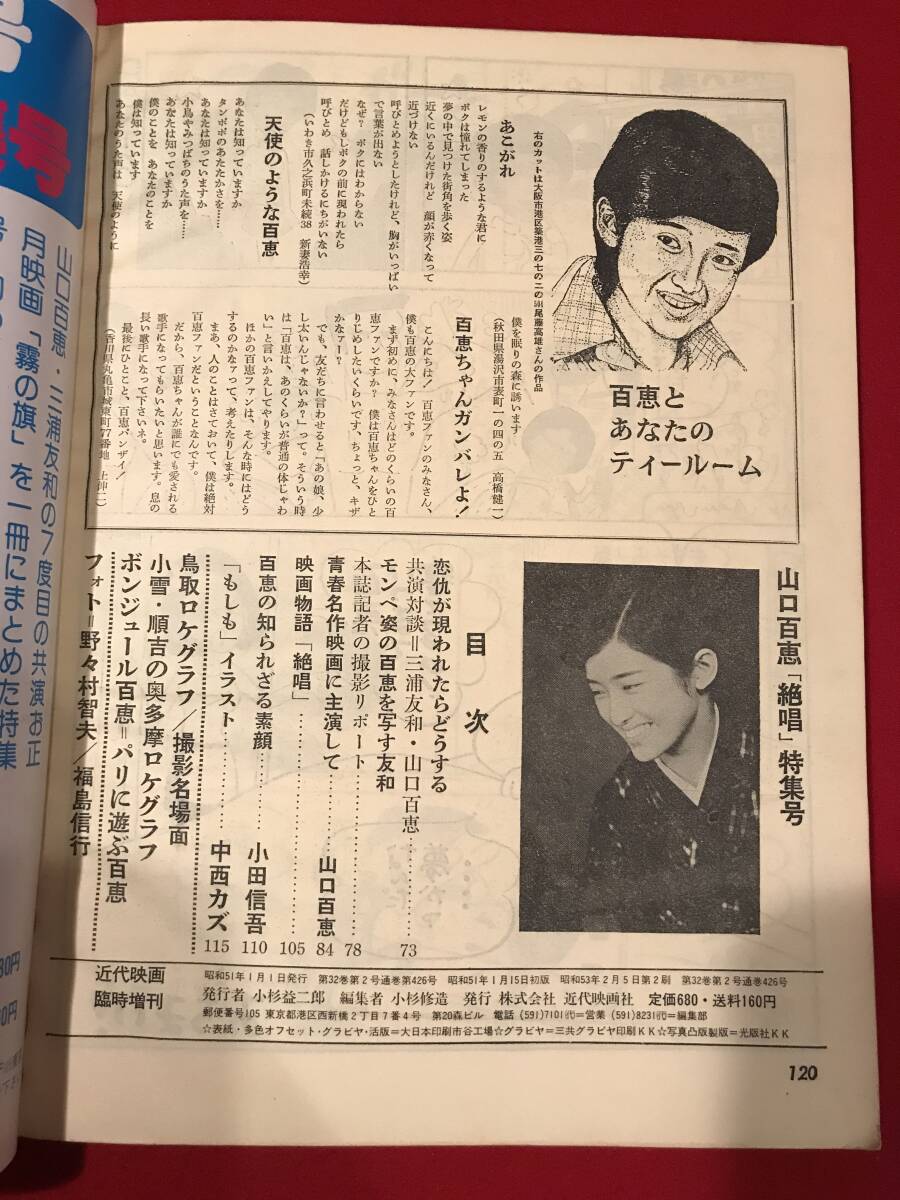 右のカットは大阪市港区築港三の七の二の501尾藤高雄さんの作品
百恵と
あなたの
ティールーム
あこがれ
レモンの香りのするような君に
ボクは憧れてしまった
夢の中で見つけた街角を歩く姿
近くにいるんだけれど 顔が赤くなって
近づけない
呼びとめようとしたけれど、胸がいっぱい
で言葉が出ない
なぜ? ボクにはわからない
だけどもしボクの前に現われたら
呼びとめ 話しかけるにちがいない
(いわき市久之浜町末続38 新妻浩幸)
天使のような百恵
あなたは知っていますか
タンポポのあたたかさを……
あなたは知っていますか
小鳥やみつばちのうた声を……
あなたは知っていますか
僕のことを あなたのことを
僕は知っています
あなたのうた声は 天使のように
僕を眠りの森に誘います
(秋田県湯沢市表町一の四の五 高橋健一)
百恵ちゃんガンバレよ!
こんにちは! 百恵ファンのみなさん、
僕も百恵の大ファンです。
まず初めに、みなさんはどのくらいの百
恵ファンですか? 僕は百恵ちゃんをひと
りじめしたいくらいです、ちょっと、キザ
かなァー?
でも、友だちに言わせると「あの娘、少
し太いんじゃないか?」って。そういう時
は「百恵は、あのくらいが普通の体じゃわ
い」と言いかえしてやります。
ほかの百恵ファンは、そんな時にはどう
するのかなァって、考えたりします。
まあ、人のことはさておいて、僕は絶対
百恵ファンだということなんです。
だから、百恵ちゃんが誰にでも愛される
歌手になってもらいたいと思います。息の
長い歌手になって下さいネ。
最後にひとこと、百恵バンザイ!
(香川県丸亀市城東町77番地
山口百恵「絶唱」特集号
目次
恋仇が現われたらどうする
共演対談=三浦友和・山口百恵…………73
モンペ姿の百恵を写す友和
本誌記者の撮影リポート…………78
青春名作映画に主演して…………山口百恵 84
映画物語「絶唱」…………105
百恵の知られざる素顔…………小田信吾 110
「もしも」イラスト…………中西カズ 115
鳥取ロケグラフ/撮影名場面
小雪・順吉の奥多摩ロケグラフ
ボンジュール百恵=パリに遊ぶ百恵
フォト=野々村智夫/福島信行
近代映画
臨時増刊
昭和51年1月1日発行 第32巻第2号通巻第426号 昭和51年1月15日初版 昭和53年2月5日第2刷 第32巻第2号通巻426号
発行者 小杉益二郎 編集者 小杉修造 発行 株式会社 近代映画社 定価680・送料160円
郵便番号105 東京都港区西新橋2丁目7番4号 第20森ビル 電話(591)7101㈹=営業(591)8231㈹=編集部
☆表紙・多色オフセット・グラビヤ・活版=大日本印刷市谷工場☆グラビヤ=三共グラビヤ印刷KK☆写真凸版製版=光版社KK
120
号
山口百恵・三浦友和の7度目の共演お正
月映画「霧の旗」を一冊にまとめた特集